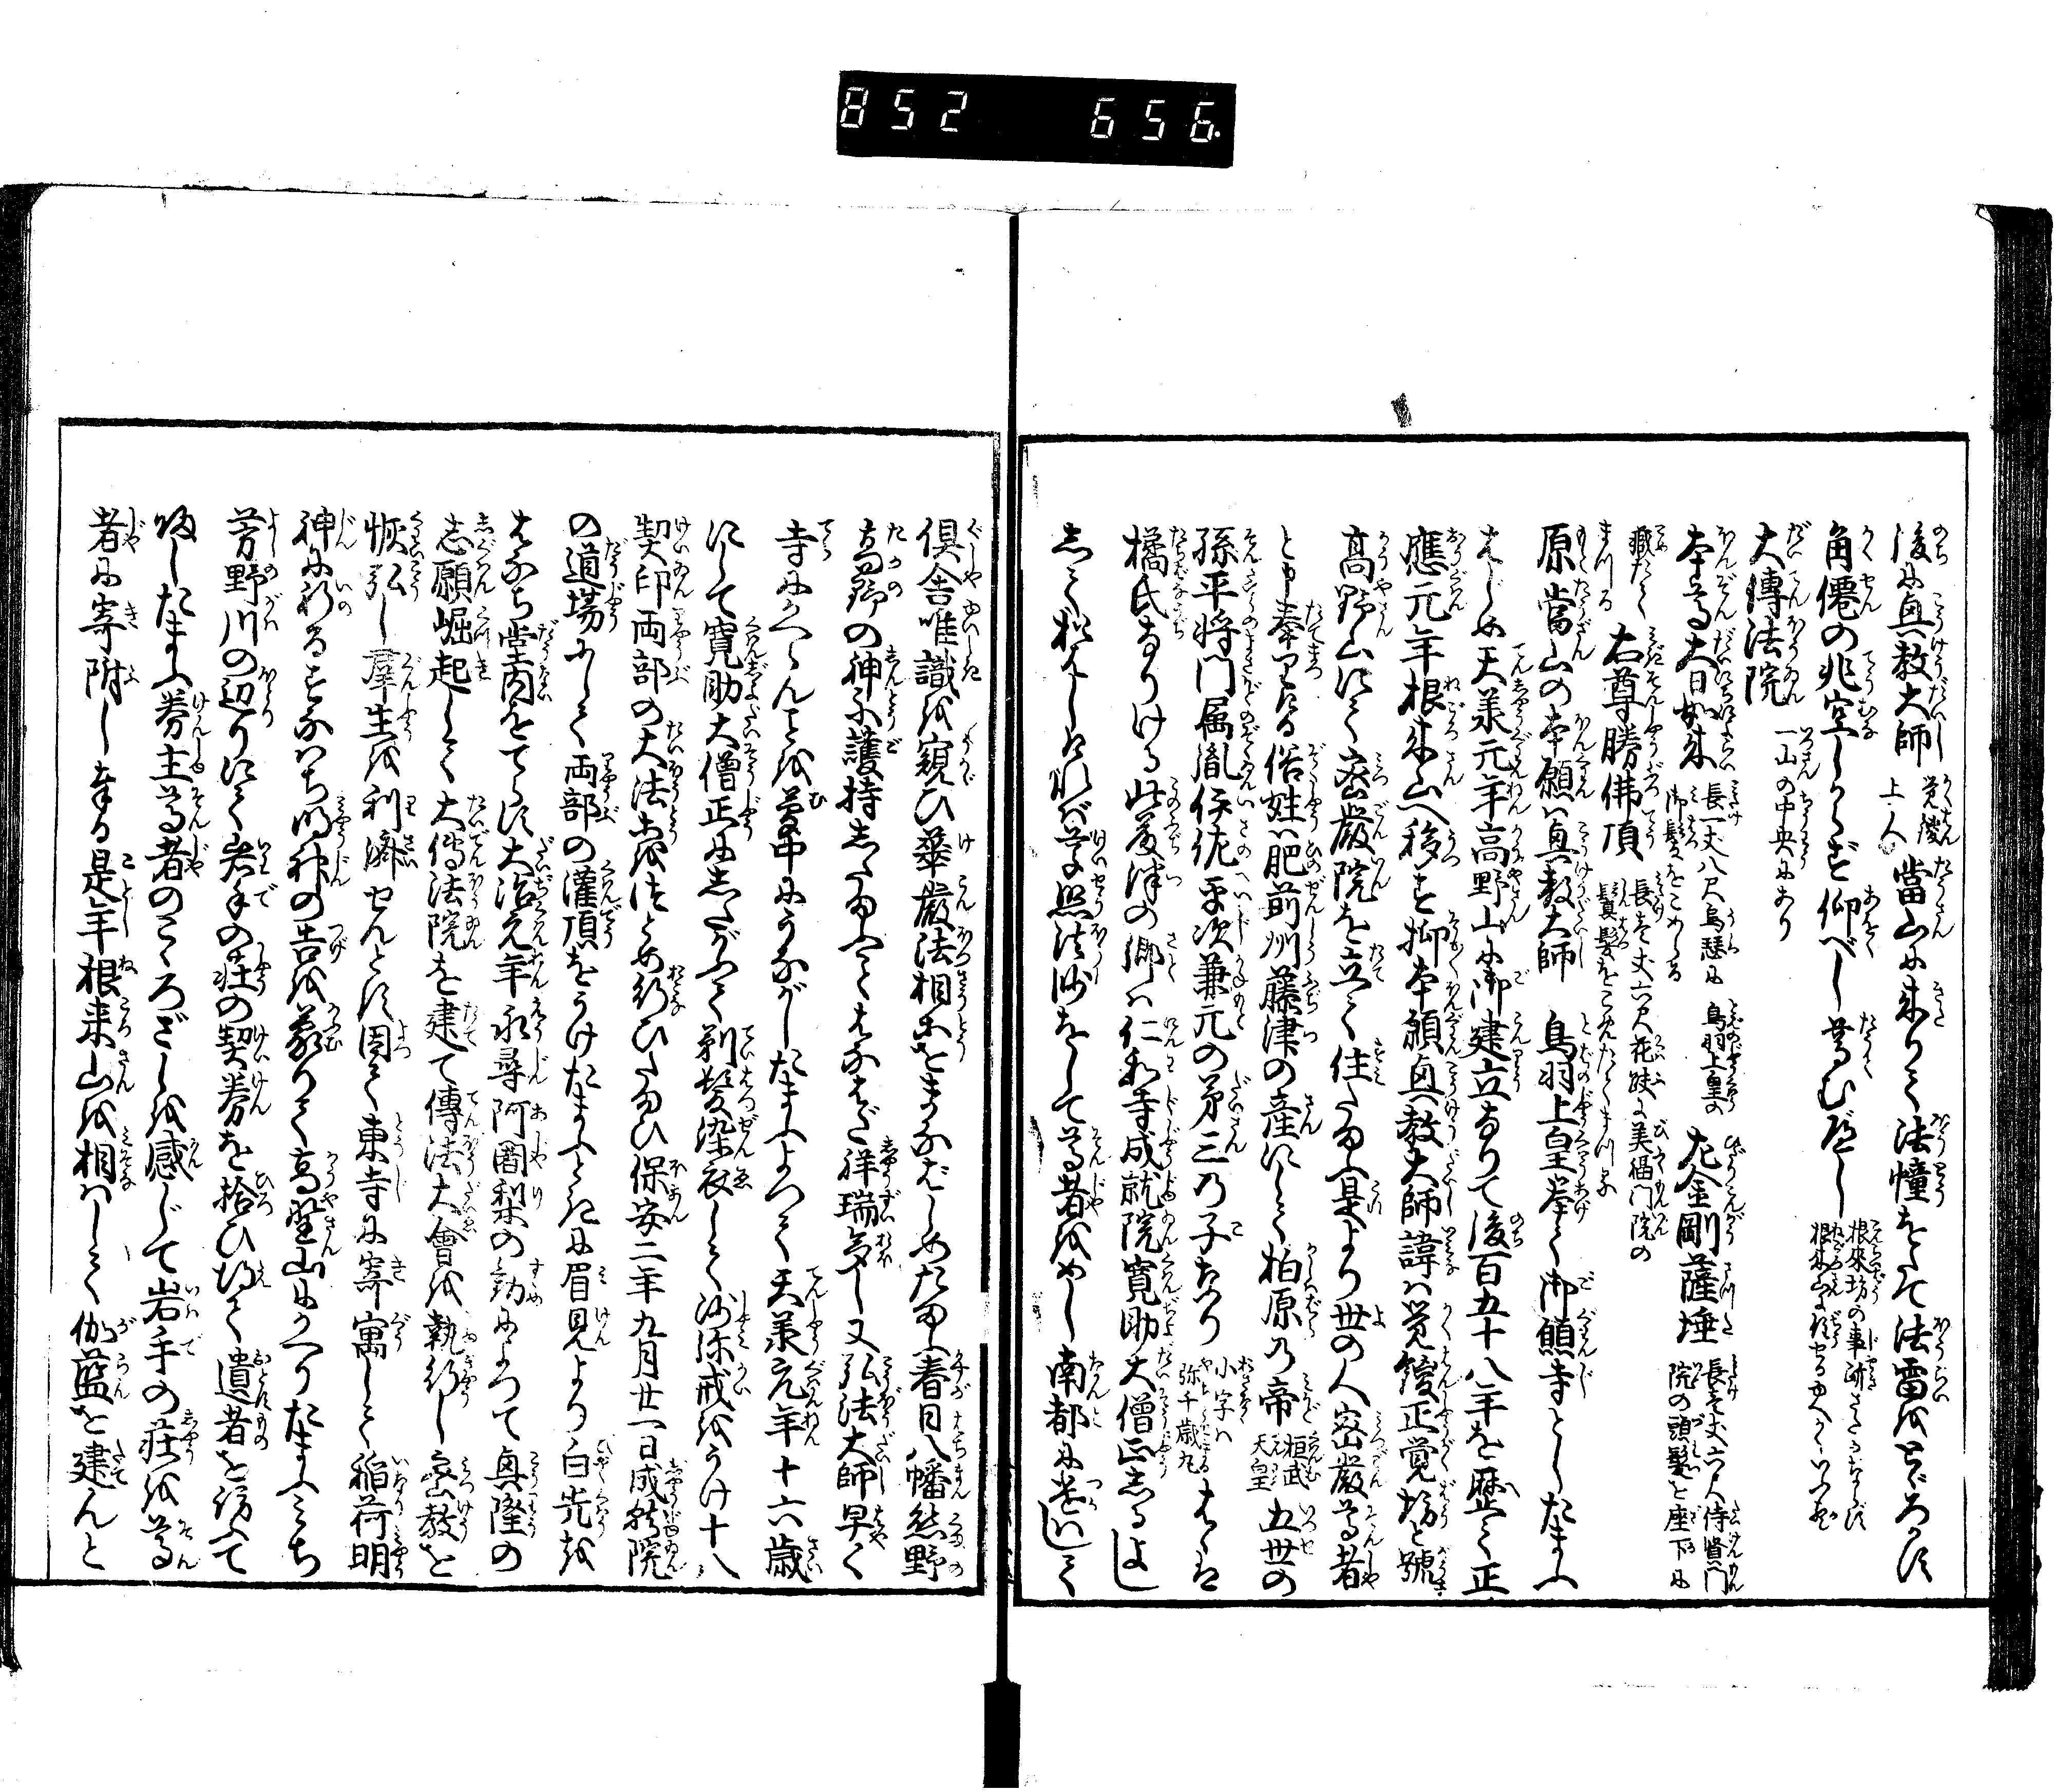 852 656
後に真教大師 覚鑁上人 當山に来りて法幢をたて法雷をとゞろかす
角僊の兆空しからず仰べし尊むべし
大傳法院 一山の中央にあり
本尊大日如来 長一丈八尺烏瑟に鳥羽上皇の御髪をこめらる 左金剛薩埵 長壱丈六尺侍賢門院の頭髪を座下に
蔵たてまつる 右尊勝佛頂 長壱丈六尺花趺に美福門院の鬒髪をこめたてまつる
原當山の本願ハ真教大師 鳥羽上皇挙て御願寺としたまふ
はじめ天承元年高野山に御建立ありて後百五十八年を歴て正
應元年根来山へ移す抑本願真教大師諱ハ覚鑁正覚坊と號す
高野山にて密嚴院を立て住たまふ是より世の人密嚴尊者
と申奉りける俗姓ハ肥前州藤津の産にして柏原の帝 桓武天皇 五世の
孫平将門属胤伊佐平次兼元の第三の子なり 小字ハ弥千歳丸 はゝは
橘氏なりける此藤津の郷ハ仁和寺成就院寛助大僧正しるよし
して
尊者をめし南都に遣ハして
倶舎唯識を窺ひ華嚴法相をまなばしめたまふ春日八幡熊野
高野の神に護持したまひて
祥瑞多し又弘法大師早く
寺にかへらんことを夢中につながしたまふよつて天承元年十六歳
にして寛助大僧正にしたがつて剃髪染衣して沙弥戒をうけ十八
契印両部の大法をつとめ行ひたまひ保安二年九月廿一日成就院
の道場にして両部の灌頂をうけたまふときに眉見より白光を
はなち堂内をてらす大治元年永尋阿闍梨の勧によつて興隆の
志願崛起して大傳法院を建て傳法大會を執行し密教を
恢弘し羣生を利濟せんとす因て東寺に寄寓して稲荷明
神に祈るすなハち明神の告を蒙りて高野山にかへりたまふみち
芳野川の辺りにて岩手の荘の契券を拾ひ得て遺者を待て
返したまふ券主尊者のこゝろざしを感じて岩手の荘を尊
者に寄附し奉る是年根来山を相ハして伽藍を建んと